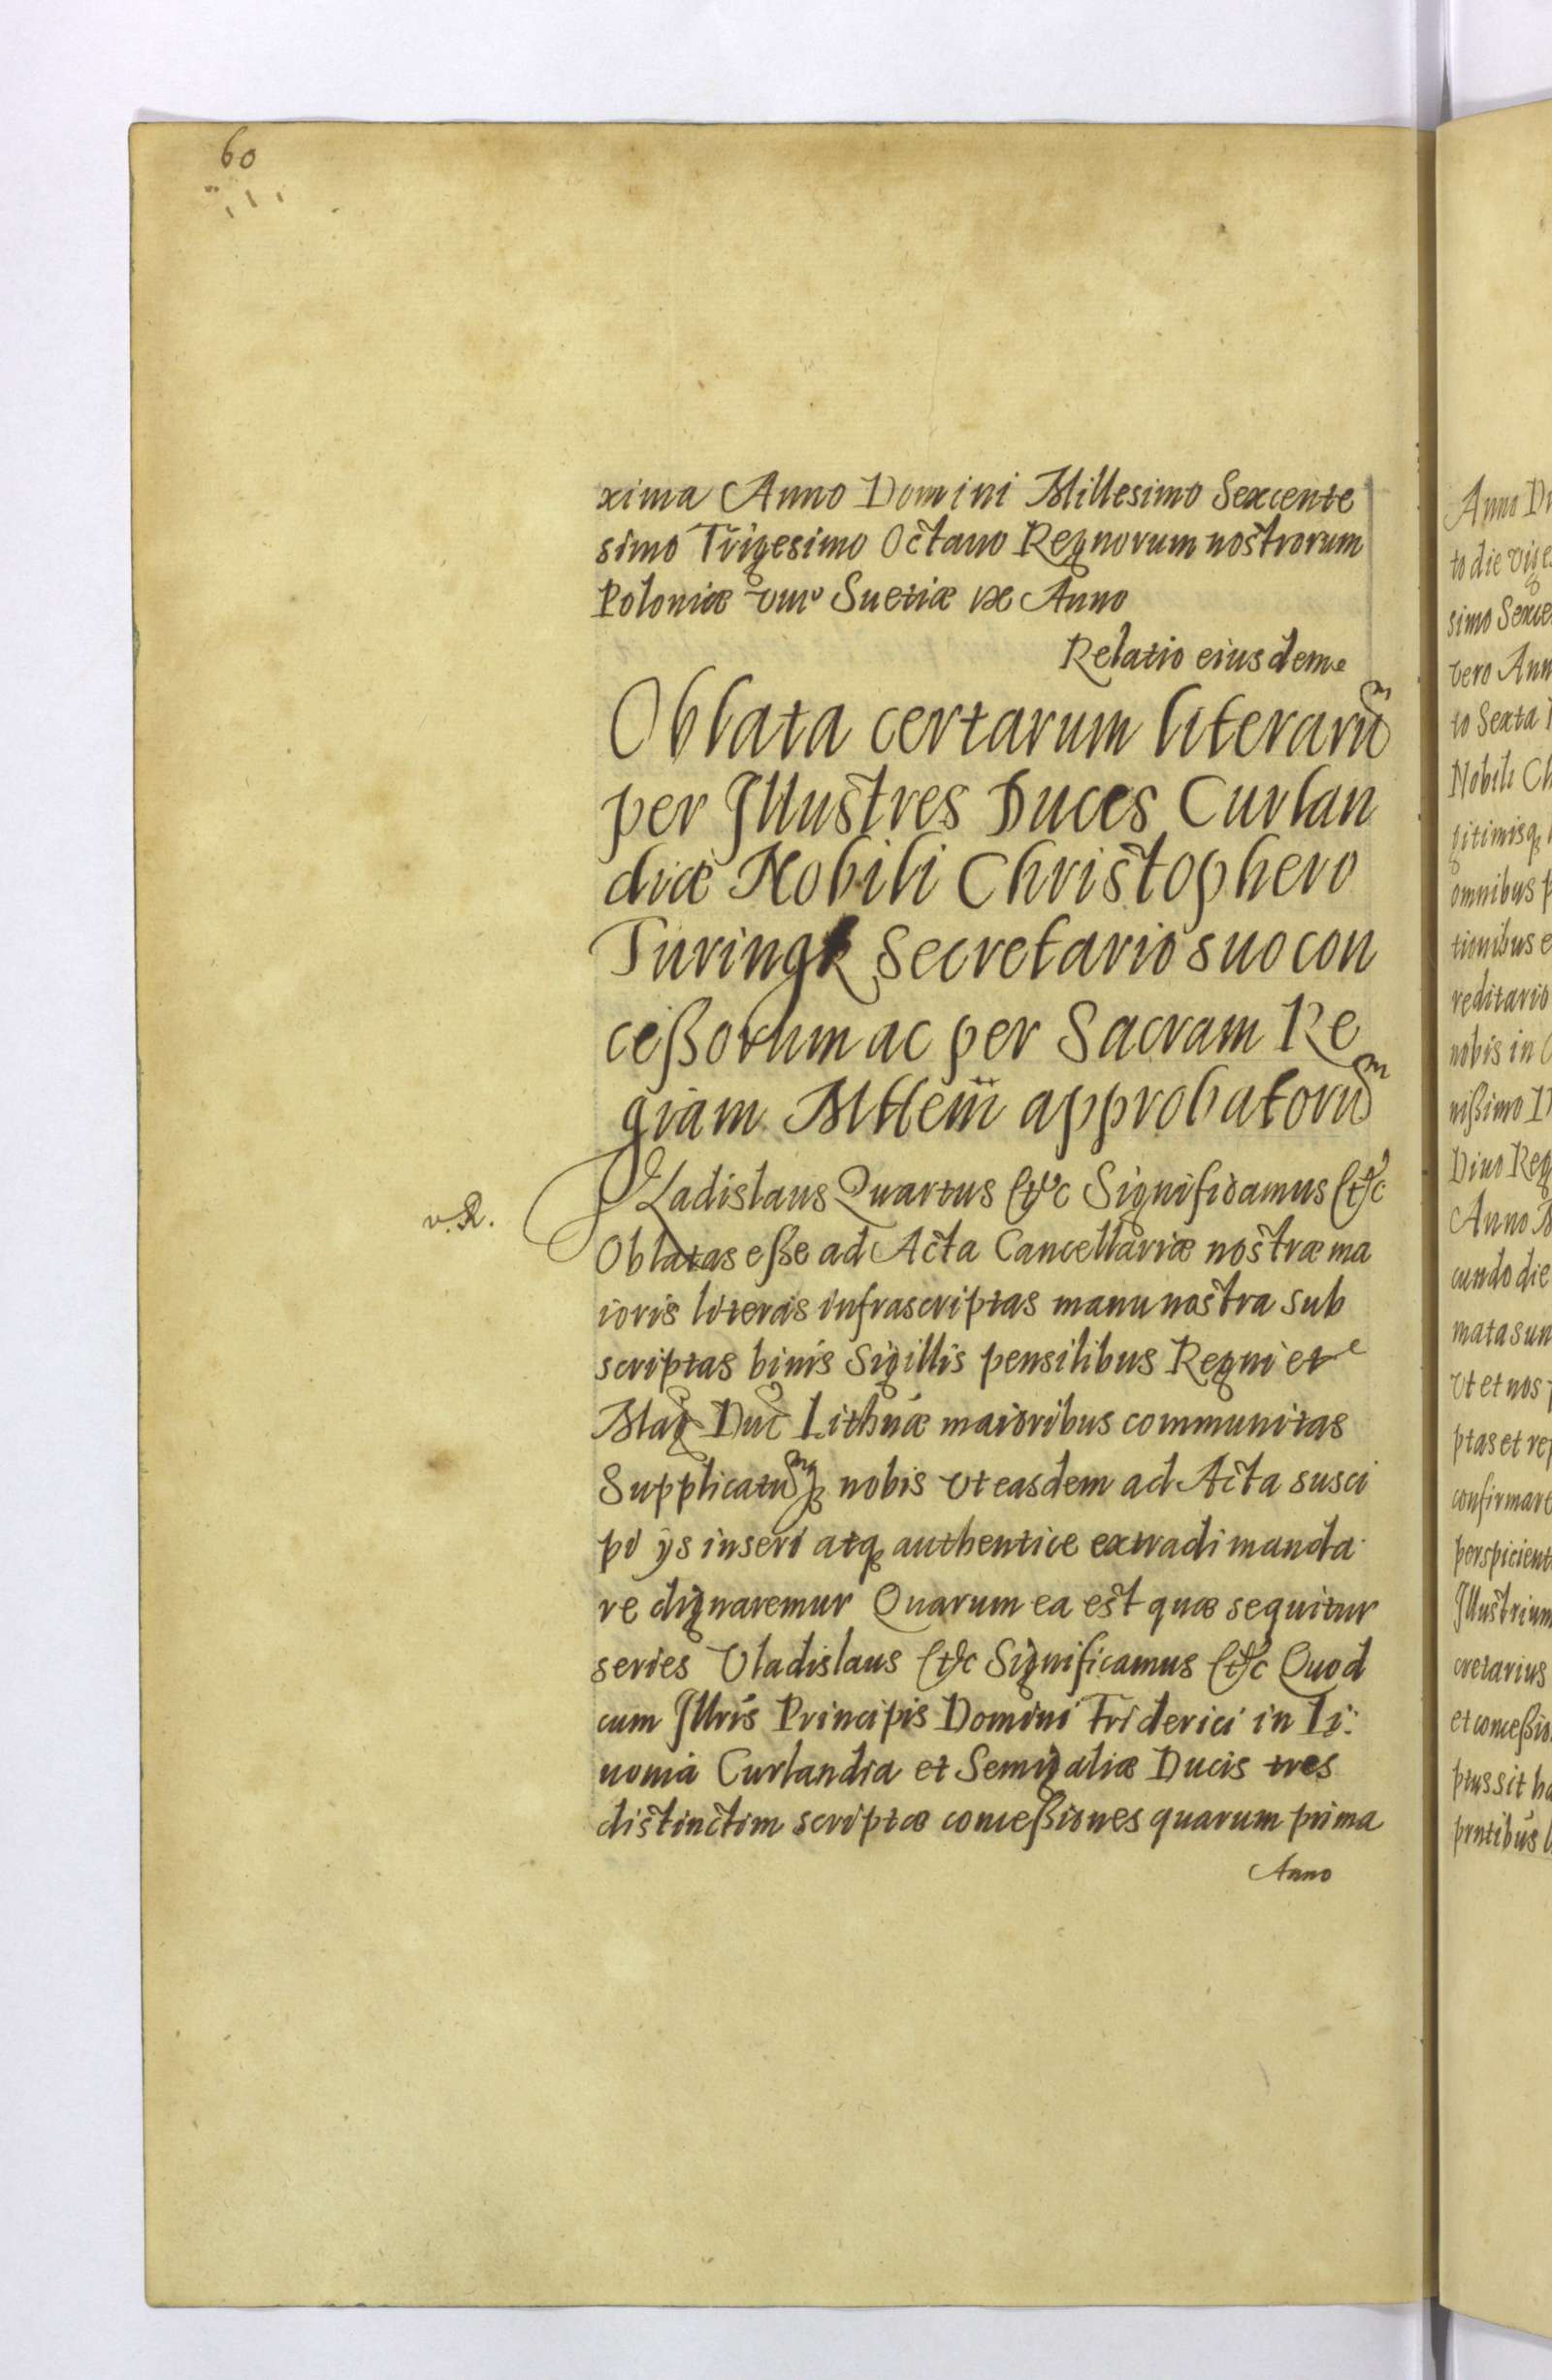 60
xima Anno Domini Millesimo Sexcente
simo Trigesimo Octauo Regnorum nostrorum
Poloniæ Suetiæ Anno
Relatio eiusdem
Oblata certarum literarũ
per Illustres Duces Curlan
diæ Nobili Christophero
Turingk Secretario suo con
ceßorum ac per Sacram Re
giam Mttem approbatorũ
v. R.
VLadislaus Quartus &c Significamus &c
Oblatas eße ad Acta Cancellariæ nostræ ma
ioris literas infrascriptas manu nostra sub
scriptas binis Sigillis pensilibus Regni et
Mag Duc Lithuæ maioribus communitas
Supplicatũq nobis vt easdem ad Acta susci
pi ijs inseri atq authentice extradi manda
re dignaremur Quarum ea est quæ sequitur
series Vladislaus &c Significamus &c Quod
cum Illris Principis Domini Friderici in Li:
uonia Curlandia et Semigaliæ Ducis tres
distinctim scriptæ conceßiones quarum prima
Anno
Anno
to die
simo
vero
to Sexta
Nobili
gitimisq
omnibus
tionibus
reditario
nobis in
nißimo
Diuo
Anno
cundo die
mata
vt et nos
ptas et
confirmare
Illustrium
cretarius
et
ptus sit
prntibus